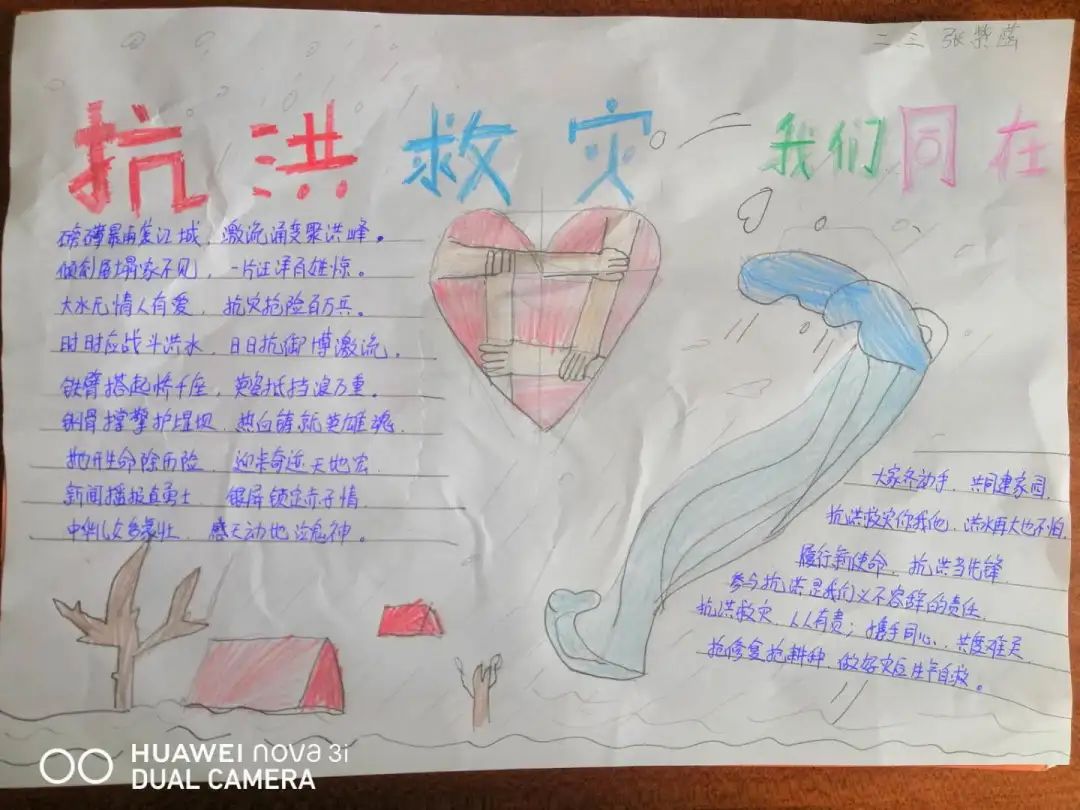 二.三 张紫菡
抗洪救灾 我们同在
磅礴暴雨袭江城，激流涌变聚洪峰。
倾刻屋塌家不见，一片汪洋百雄惊。
大水无情人有爱，抗灾抢险百万兵。
时时应战斗洪水，日日抗御博激流。
铁臂搭起桥千座，英躯抵挡浪万重。
钢骨撑擎护堤坝 热血铸就英雄魂
抛开生命除历险 迎来奇迹天地宏
新闻播报直勇士 银屏锁定赤子情
中华儿女多豪壮 感天动地泣鬼神。
大家齐动手，共同建家园
抗洪救灾你我他，洪水再大也不怕
履行新使命，抗洪当先锋
参与抗洪是我们义不容辞的责任
抗洪救灾，人人有责；携手同心，共度难关
抢修复抢耕种，做好灾区生产自救。
HUAWEI nova 3i
DUAL CAMERA